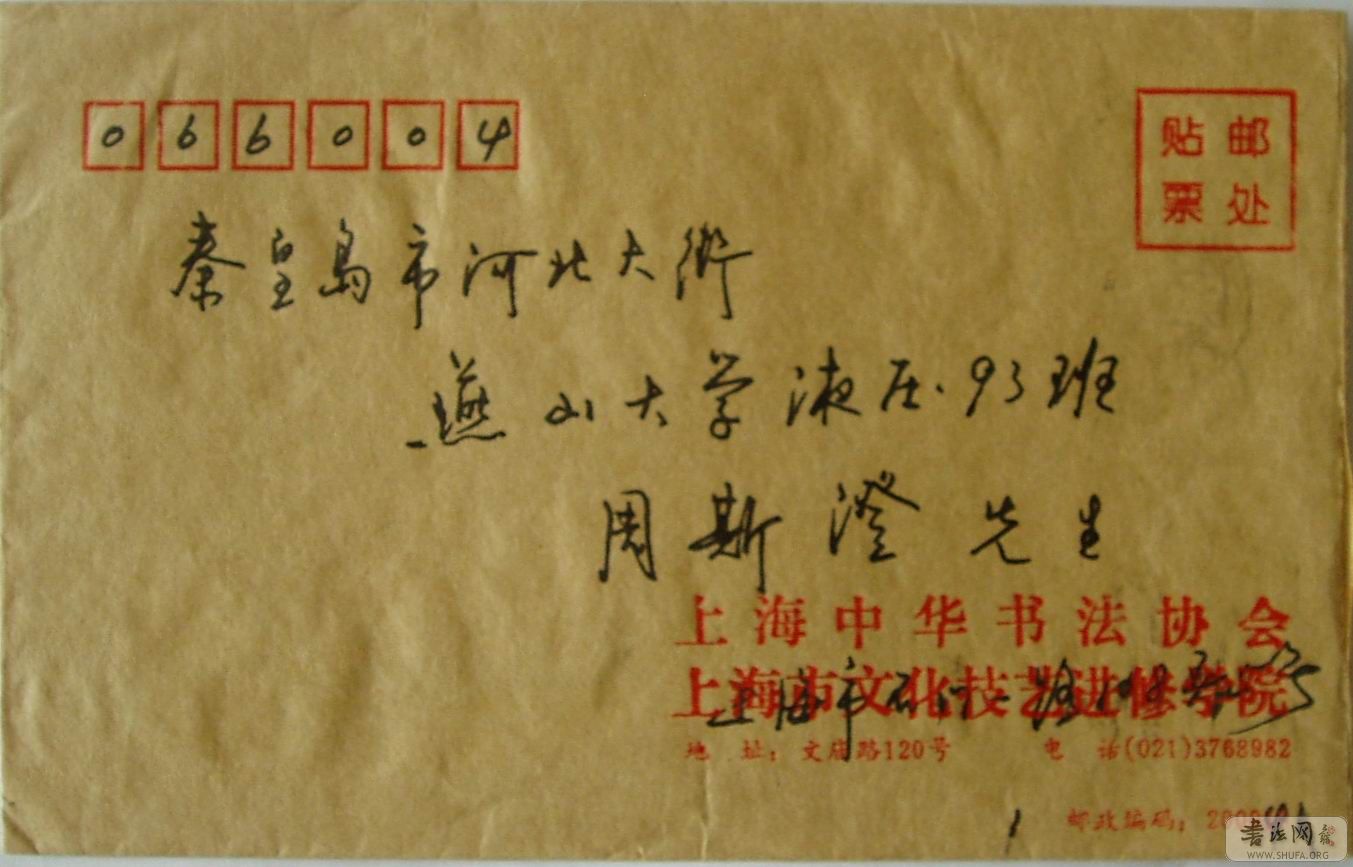 066004
贴邮
票处
秦皇岛市河北大街
燕山大学液压.93班
周斯澄先生
上海中华书法协会
上海市文化技艺进修学院
上海市
地 址：文庙路120号 电 话(021)3768982
邮政编码：
書法网
WWW.SHUFA.ORG